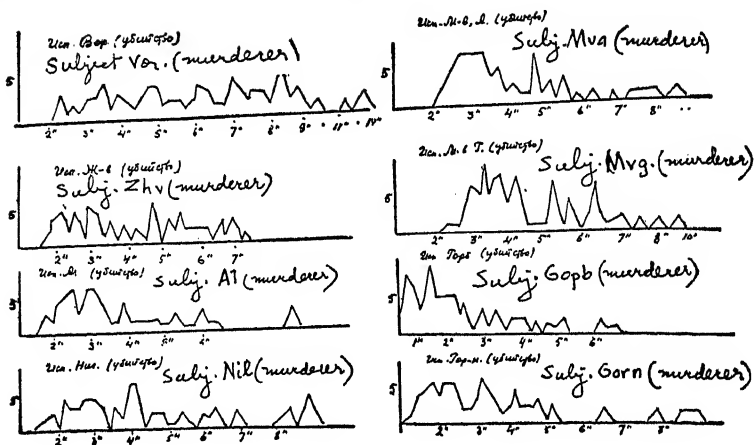 Исп. Вор. (убийство)
Subject Vor. (murderer)
5
2" 3" 4" 5" 6" 7" 8" 9" 11"
Исп. Ж-в (убийство)
Subj. Zhv (murderer)
5
2" 3" 4" 5" 6" 7"
Исп. (убийство)
Subj. A1 (murderer)
5
2" 3" 4" 5" 6"
Исп. Нил. (убийство)
Subj. Nil (murderer)
5
2" 3" 4" 5" 6" 7" 8"
Исп. М-в, А. (убийство)
Subj. Mva (murderer)
5
2" 3" 4" 5" 6" 7" 8" 9"
Исп. М-в Г. (убийство)
Subj. Mvg. (murderer)
5
2" 3" 4" 5" 6" 7" 8" 10"
Исп. (убийство)
Subj. Gopb (murderer)
5
1" 2" 3" 4" 5" 6"
Исп. Гор-н. (убийство)
Subj. Gorn (murderer)
5
2" 3" 4" 5" 6" 7" 8"